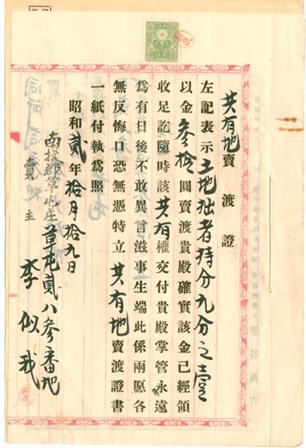 共有地賣渡證
左記表示土地拙者持分九分之壹
以金參拾圓賣渡貴殿確實該金已經領
收足訖隨時該共有權交付貴殿掌管永遠
為有日後不敢異言滋事生端此係兩愿各
無反悔口恐無憑特立共有地賣渡證書
一紙付執為照
昭和貳年拾月拾九日
南投郡草屯庄草屯貳八參番地
賣主 李似我